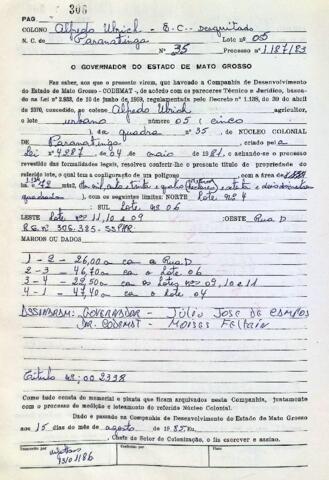 PAG. 306
COLONO Alfredo Ulrich - E.C. - Desquitado
N. C. de Paranatinga Lote nº 05
Nº 35 Processo nº 1.187/83
O GOVERNADOR DO ESTADO DE MATO GROSSO
Faz saber, aos que o presente virem, que havendo a Companhia de Desenvolvimento
do Estado de Mato Grosso - CODEMAT -, de acôrdo com os pareceres Técnico e Jurídico, basea-
da na Lei nº 2.833, de 10 de junho de 1969, regulamentada pelo Decreto nº 1.128, de 20 de abril
de 1970, concedido, ao colono Alfredo Ulrich agricultor,
o lote urbano número 05 ( cinco
) da quadra nº 35, do NÚCLEO COLONIAL
DE Paranatinga, criado pela
Lei nº 4287 de 04 de maio de 1981, e achando-se o processo
revestido das formalidades legais, resolveu conferir-lhe o presente título de propriedade do
referido lote, o qual tem a configuração de um polígono com a área de
quadrados), com os seguintes limites: NORTE lote nº 04
; SUL, lote nº 06
LESTE lotes nºs 11, 10 e 09 ;OESTE, Rua D
R.G. nº 306.325-SSP/PR
MARCOS OU DADOS
1 - 2 - 26,00m com a Rua D
2 - 3 - 46,70m com o lote 06
3 - 4 - 22,50 com os lotes nºs 09, 10 e 11
4 - 1 - 47,40m com o lote 04
ASSINARAM: GOVERNADOR - JÚLIO JOSÉ DE CAMPOS
DIR. CODEMAT - MOISES FELTRIN
Título nº 002338
Como tudo consta do memorial e planta que ficam arquivados nesta Companhia, juntamente
com o processo de medição e loteamento do referido Núcleo Colonial.
Dado e passado na Companhia de Desenvolvimento do Estado de Mato Grosso
aos 15 dias do mês de agosto de 1985. Eu,
Chefe do Setor de Colonização, o fiz escrever e assino.
Transcrito por
13/01/86
Conferido por